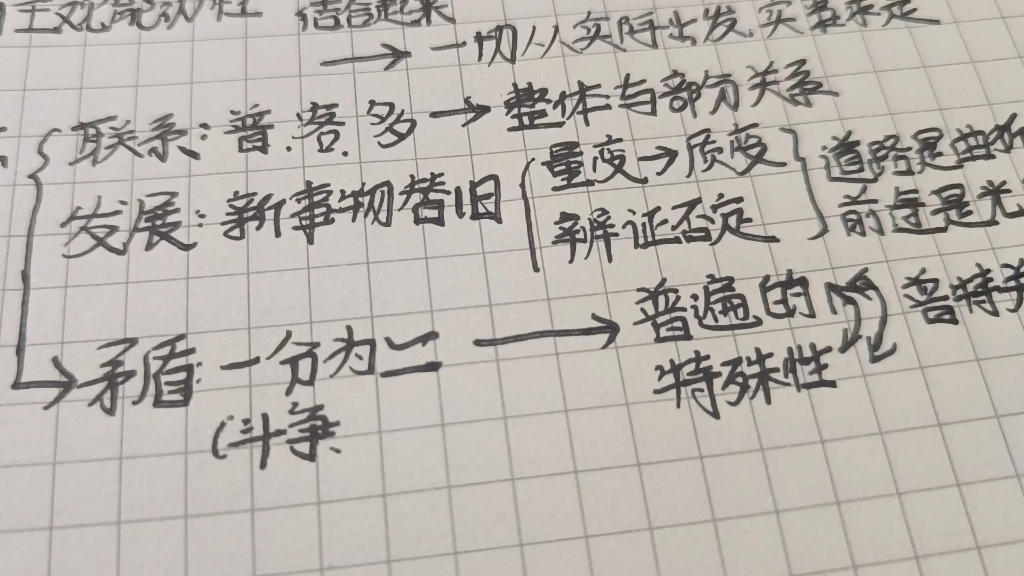 主观能动性 结合起来
→ 一切从实际出发,实事求是
联系:普.客.多→整体与部分关系
发展:新事物替旧
量变→质变
辨证否定
道路是曲折
前途是光
矛盾:一分为二 → 普遍的
特殊性
普特关
(斗争